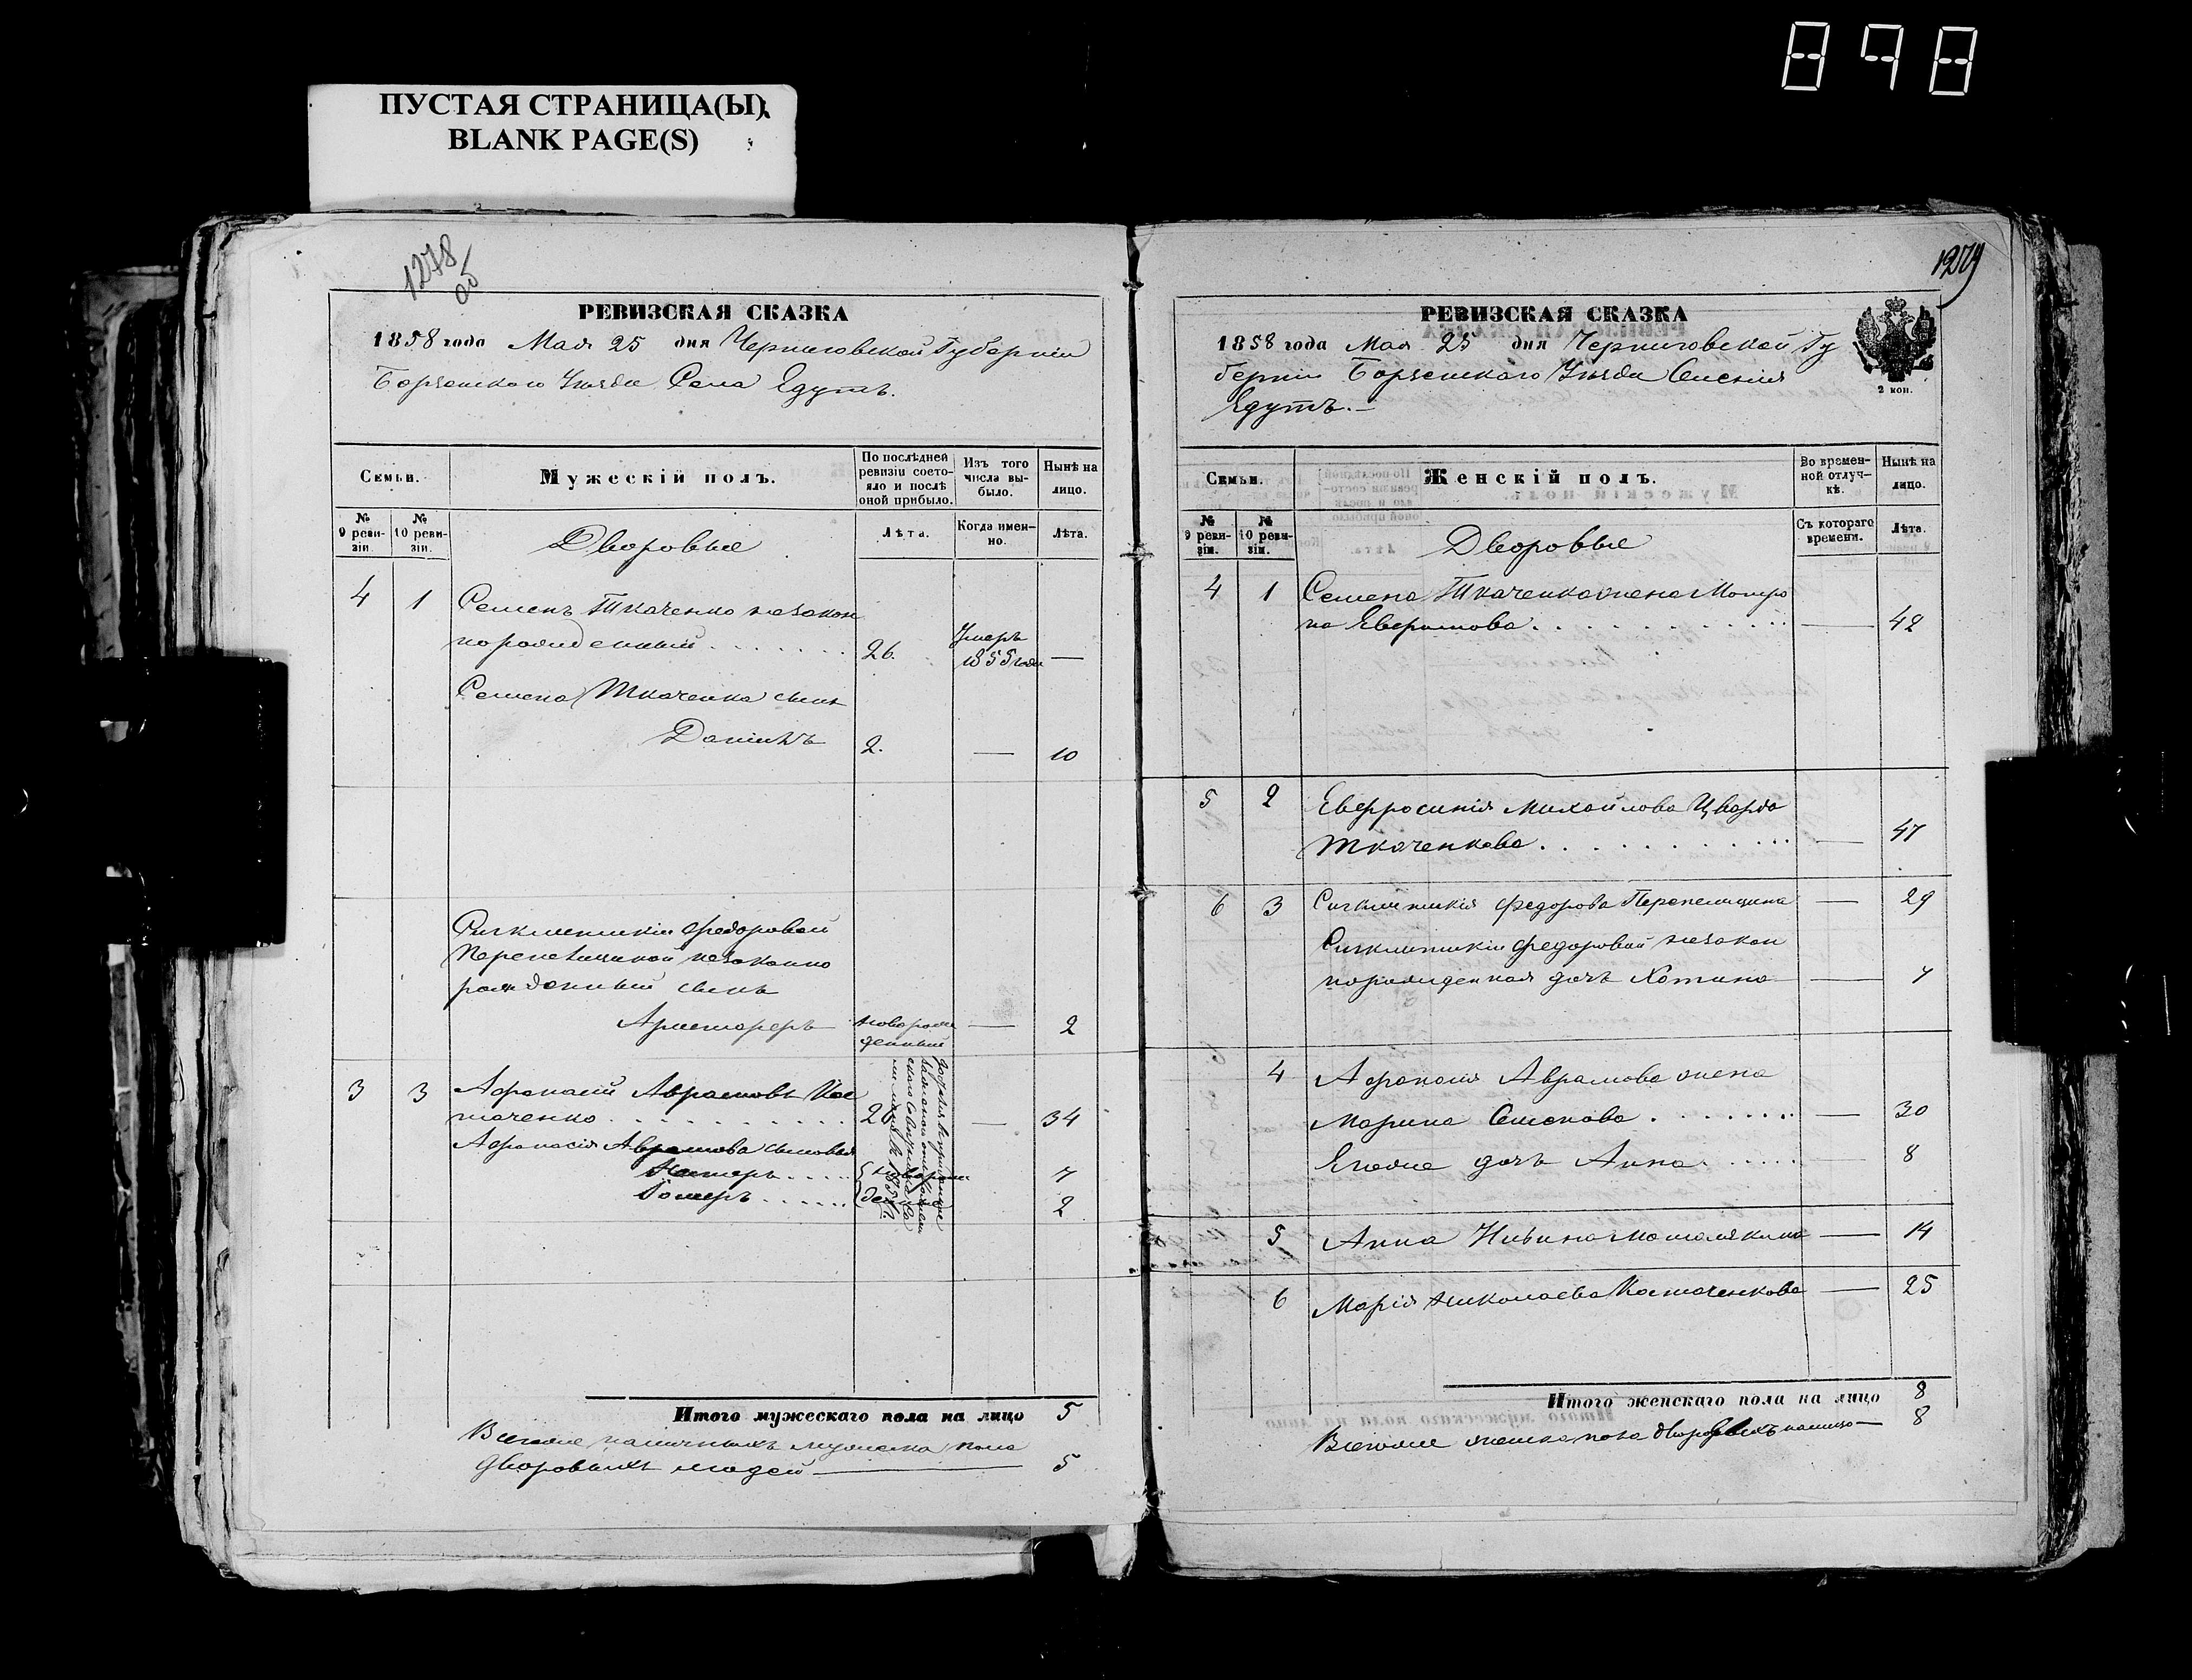 898
ПУСТАЯ СТРАНИЦА(Ы)
BLANK PAGE(S)
1278
об
РЕВИЗСКАЯ СКАЗКА
1858 года Мая 25 дня Черниговской Губерніи
Борзенского Уезда Села Ядутъ.
Семьи.
Мужескій полъ.
По послѣдней ревизіи состояло и послѣ оной прибыло.
Изъ того числа выбыло.
Нынѣ на лицо.
№ 9 ревизіи.
№ 10 ревизіи.
Дворовые
Лѣта.
Когда именно.
Лѣта.
4 1 Семенъ Ткаченко незакон
норожденный . . . . . . . 26. Умеръ 1855 года —
Семена Ткаченка сынъ
Даніилъ 2. — 10
Федоровой
незаконно
рожденный сынъ
новорож
денный — 2
3 3 Афанасій Аврамовъ Кос
таченко . . . . . . . . . . . 26 — 34
Афанасія Аврамова сыновья
7
2
Итого мужескаго пола на лицо 5
Всего же наличныхъ мужеска пола
дворовыхъ людей — 5
1279
РЕВИЗСКАЯ СКАЗКА
1858 года Мая 25 дня Черниговской Гу
берніи Борзенского Уезда Селенія
Ядутъ.—
2 коп.
Семьи.
Женскій полъ.
Во временной отлучкѣ.
Нынѣ на лицо.
№ 9 ревизіи.
№ 10 ревизіи.
Дворовые
Съ котораго времени.
Лѣта.
4 1 Семена Ткаченка жена Матро
на . . . . . . . . . . . — 42
5 2 Евфросинія Михайлова
Ткаченкова . . . . . . . . . . . — 47
6 3 Федорова Перепелицина — 29
Федоровой незакон
норожденная дочь — 7
4 Афанасія Аврамова жена
Марина Семенова . . . . . . . — 30
Егоже дочь Анна . . . . . — 8
5 Анна — 14
6 Марія Николаева Костаченкова — 25
Итого женскаго пола на лицо 8
Всего же женска пола дворовыхъ налицо — 8